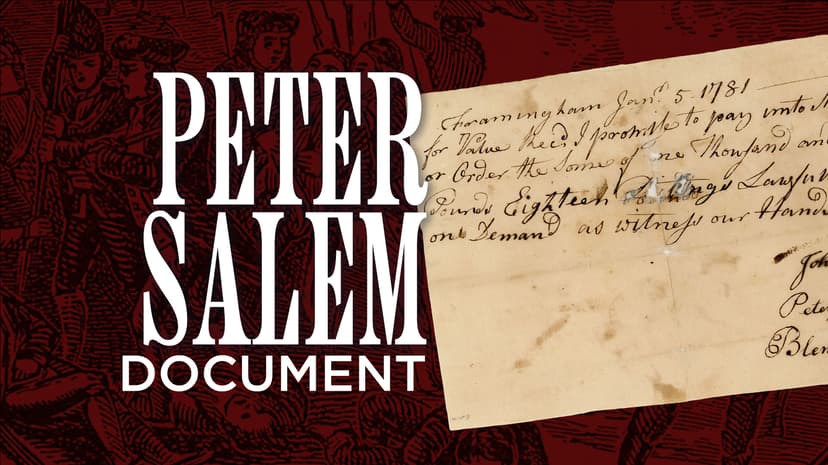 PETER
SALEM
DOCUMENT
Framingham Janr. 5 1781
for Value Recd I promise to pay unto
or Order the Some of one Thousand and
Pounds Eighteen Lawfull
one Demand as witness our Hand
John
Peter
Blen